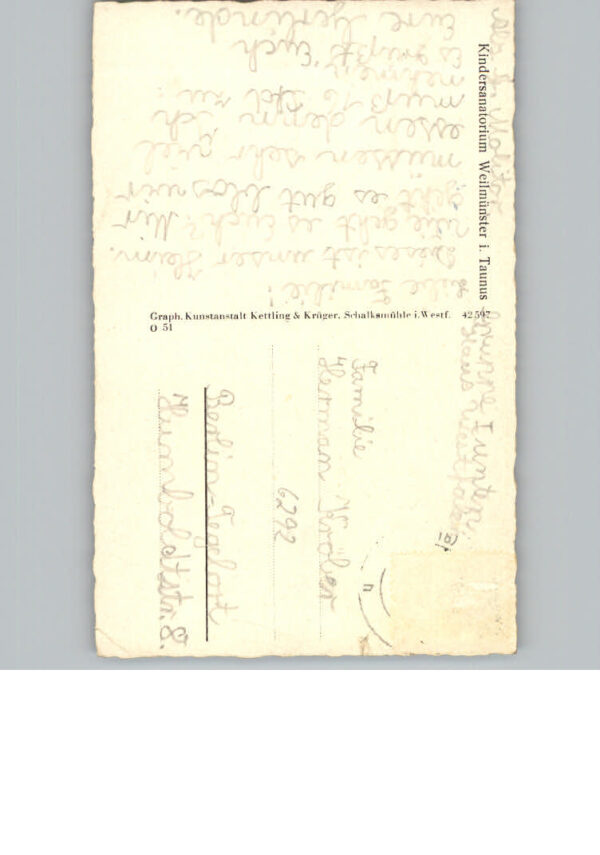 Kindersanatorium Weilmünster i. Taunus
Liebe Familie!
Dieses ist unser Heim.
Wie geht es Euch? Mir
geht es gut blos wir
müssen sehr viel
essen denn ich
muß 16 zu
nehmen.
Es grüßt Euch
Eure Gerlinde.
Graph. Kunstanstalt Kettling & Krüger, Schalksmühle i. Westf. 42597
O 51
Familie
Herman Kröber
6292
Berlin-Tegelort
Humboldtstr. 8.
Haus Westfalen